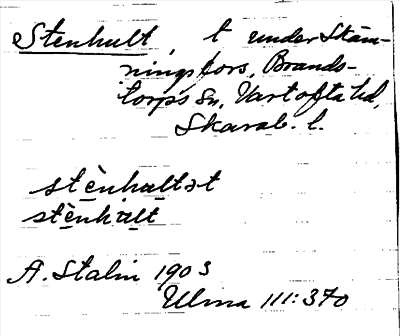 Stenhult, t under Skäm-
ningsfors, Brands-
torps Sn, Vartofta hd,
Skarab. l.
stènhultət
stènhult
A. Stalin 1903
Ulma 111:370